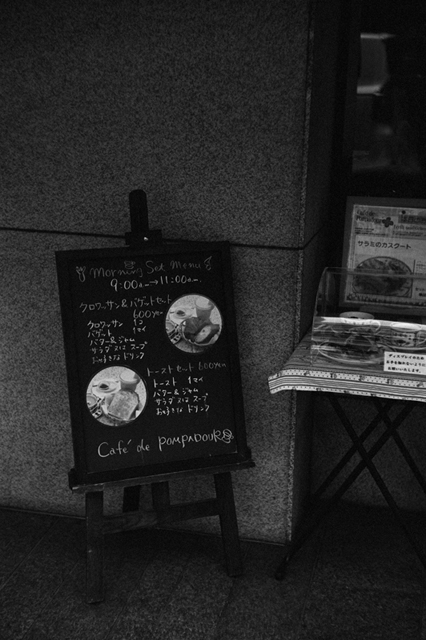 Morning Set Menu
9:00a.m→11:00a.m.
クロワッサン&バゲットセット
600yen
クロワッサン 1コ
バゲット 1マイ
バター&ジャム
サラダ又は スープ
お好きなドリンク
トーストセット 600yen
トースト 1マイ
バター&ジャム
サラダ又は スープ
お好きな ドリンク
Café de POMPADOUR
サラミのカスクート